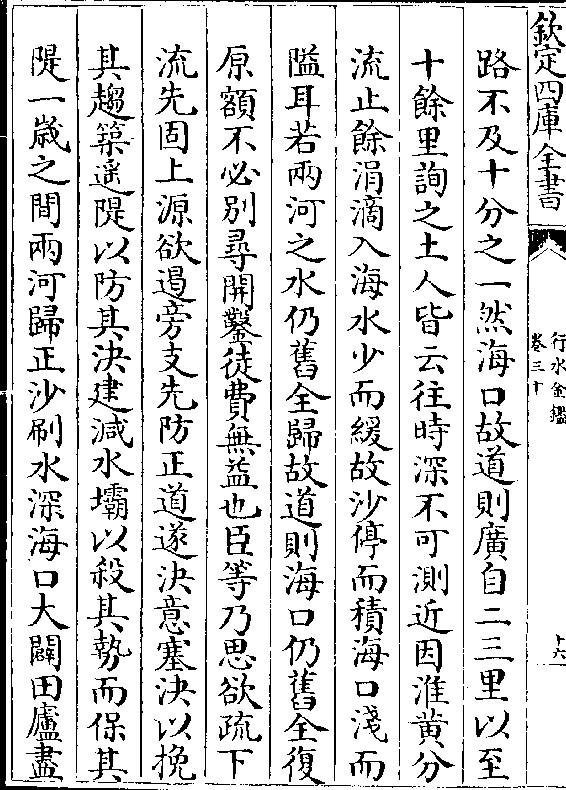 欽定四庫全書
行水金鑑
卷三十
十六
路不及十分之一然海口故道則廣自二三里以至
十餘里詢之土人皆云往時深不可測近因淮黄分
流止餘涓滴入海水少而緩故沙停而積海口淺而
隘耳若兩河之水仍舊全歸故道則海口仍舊全復
原額不必别尋開鑿徒費無益也臣等乃思欲疏下
流先固上源欲遏旁支先防正道遂決意塞決以挽
其趨築遥隄以防其決建減水壩以殺其勢而保其
隄一歲之間兩河歸正沙刷水深海口大闢田廬盡